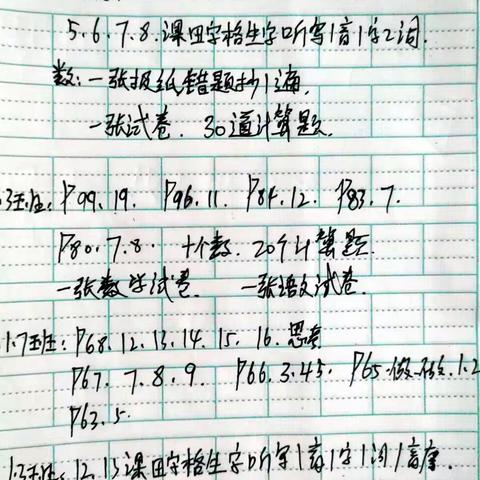 5.6.7.8.课田字格生字听写1音1字2词.
数:一张报纸错题抄1遍,
一张试卷. 30道计算题.
P99.19. P96.11. P84.12. P83.7.
P80.7.8. 十个数. 20个计算题.
一张数学试卷. 一张语文试卷.
1.7班:P68.12.13.14.15.16.思考
P67.7.8.9. P66.3.4.5. P65.做一做.1.2
P63.5.
12.13课田字格生字听写1音1字1词1音序.